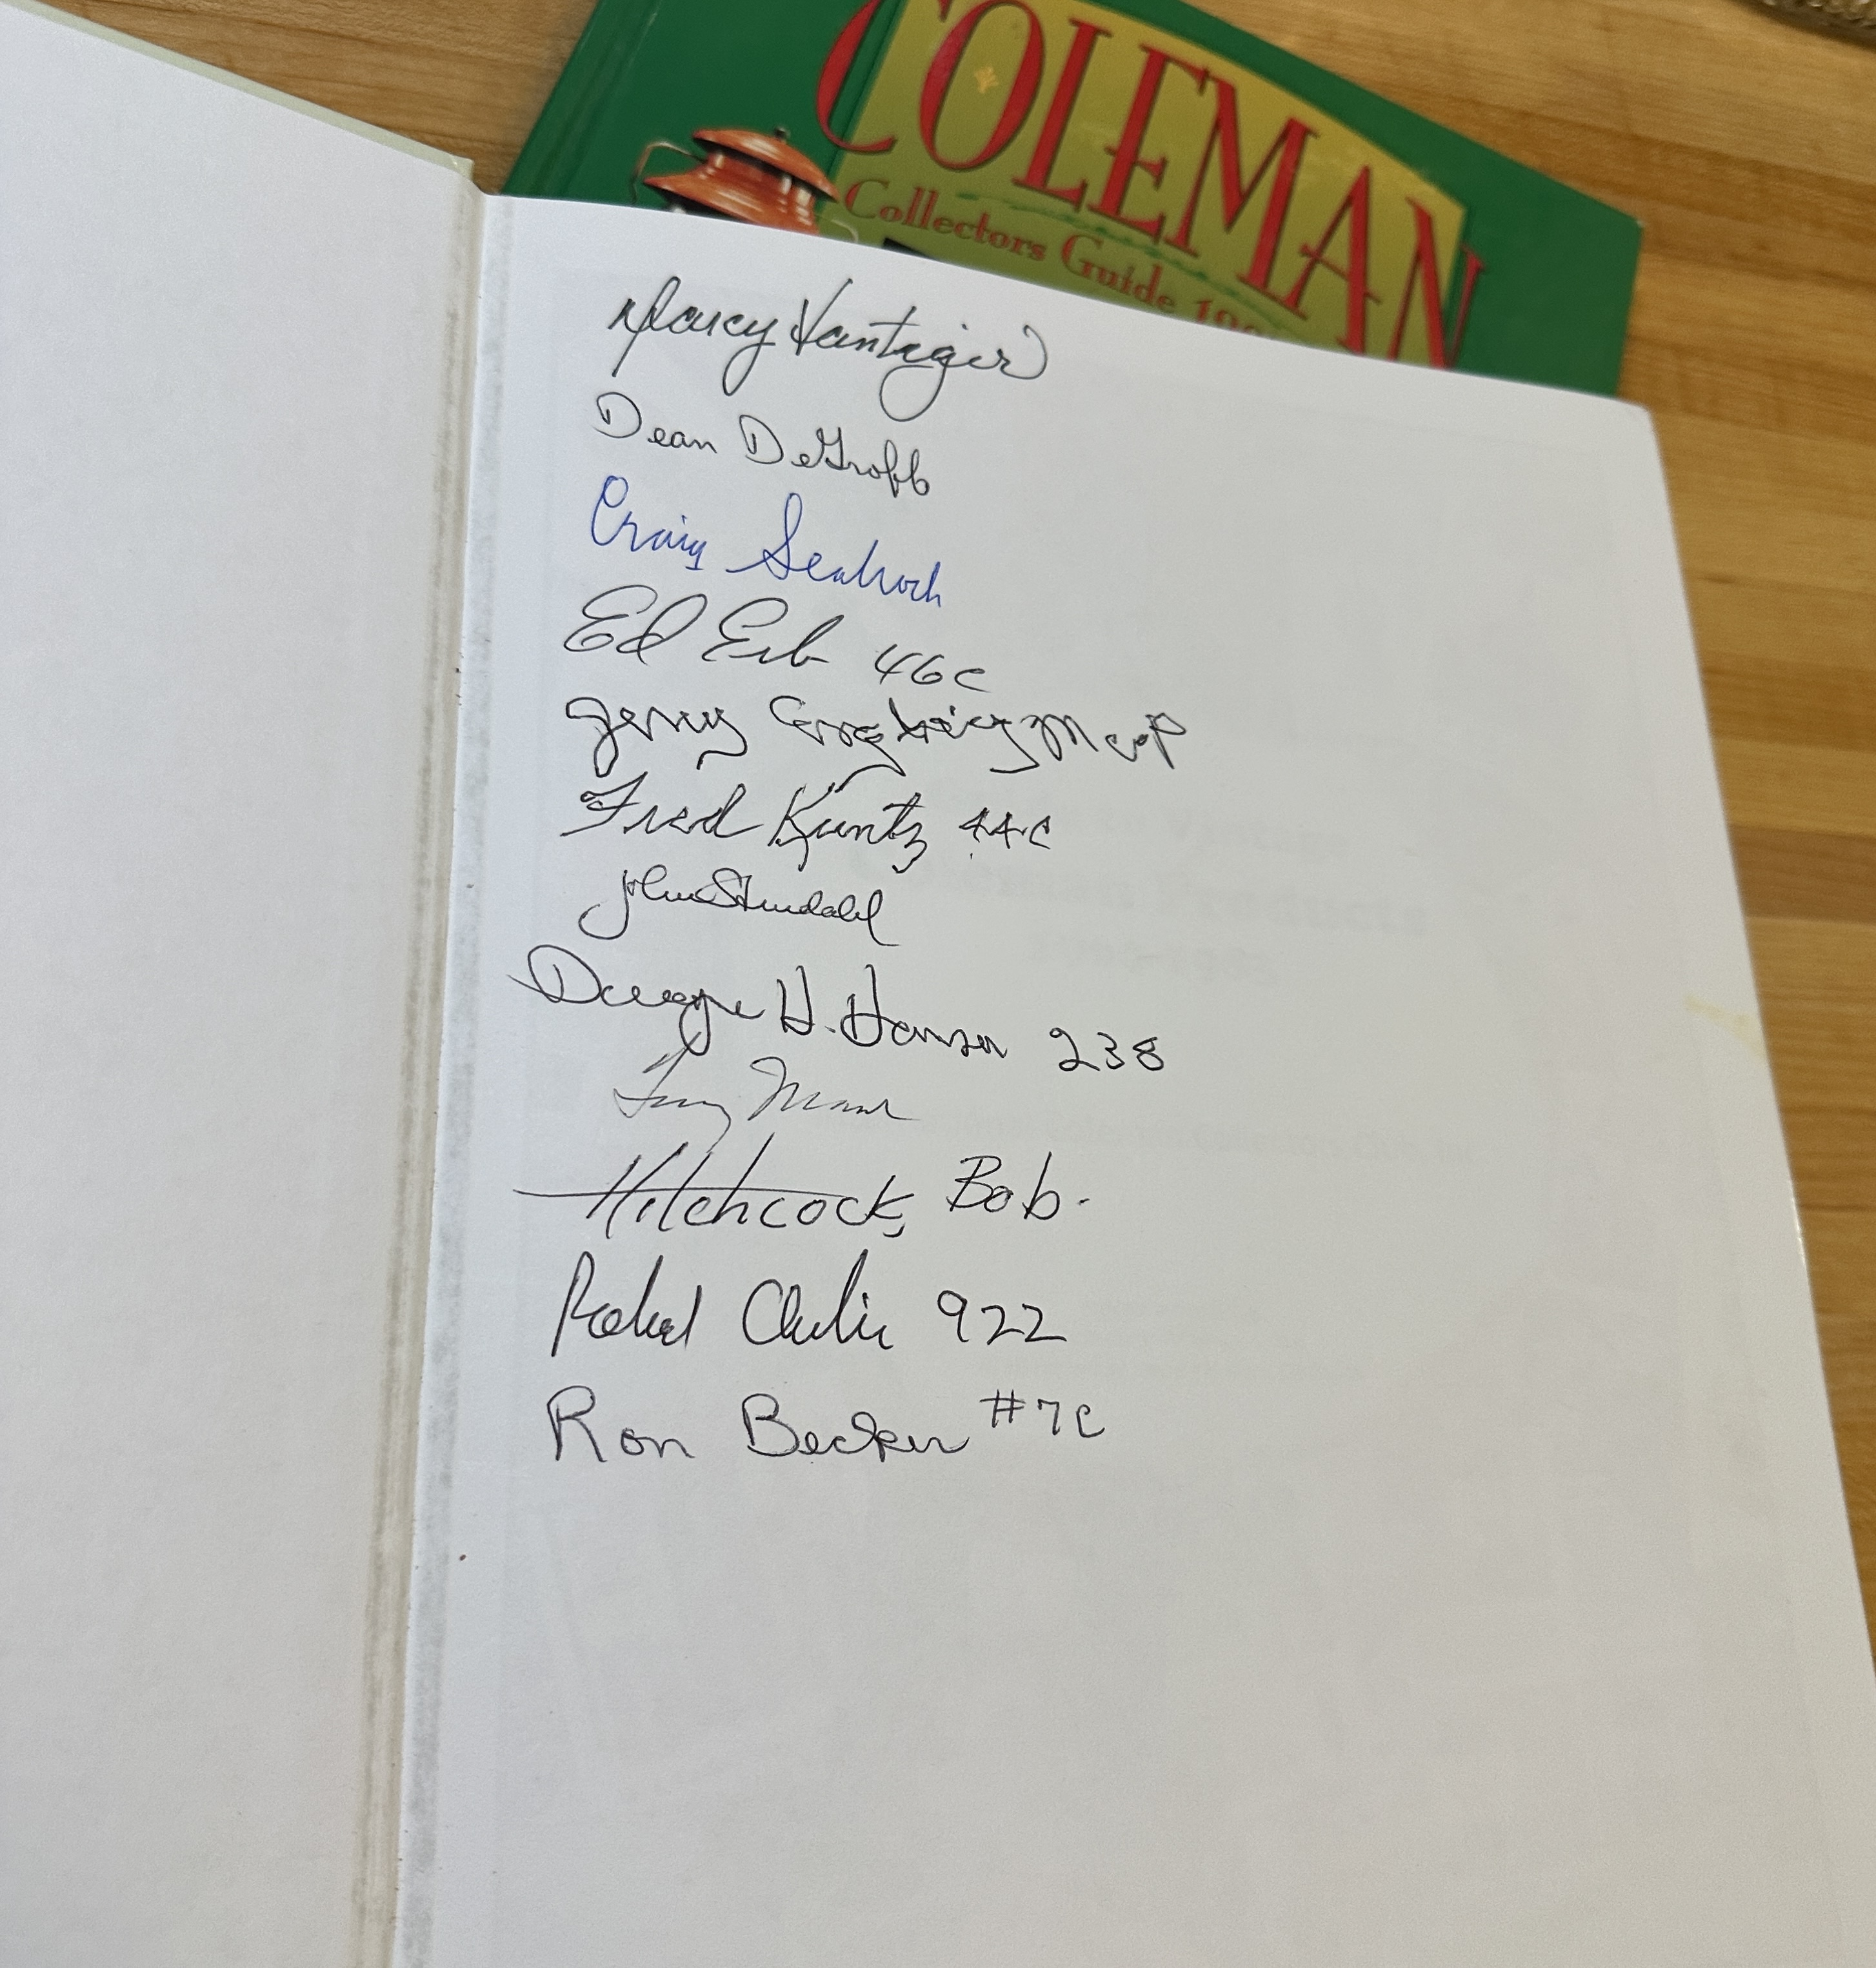 COLEMAN
Collectors Guide 19
Nancy
Dean DeGroff
Craig Seabrook
Ed Erb 46C
Jerry
Fred Kuntz 44C
John Stendahl
Dwayne H. Hanson 238
Hitchcock, Bob.
Robert 922
Ron Becker #7C